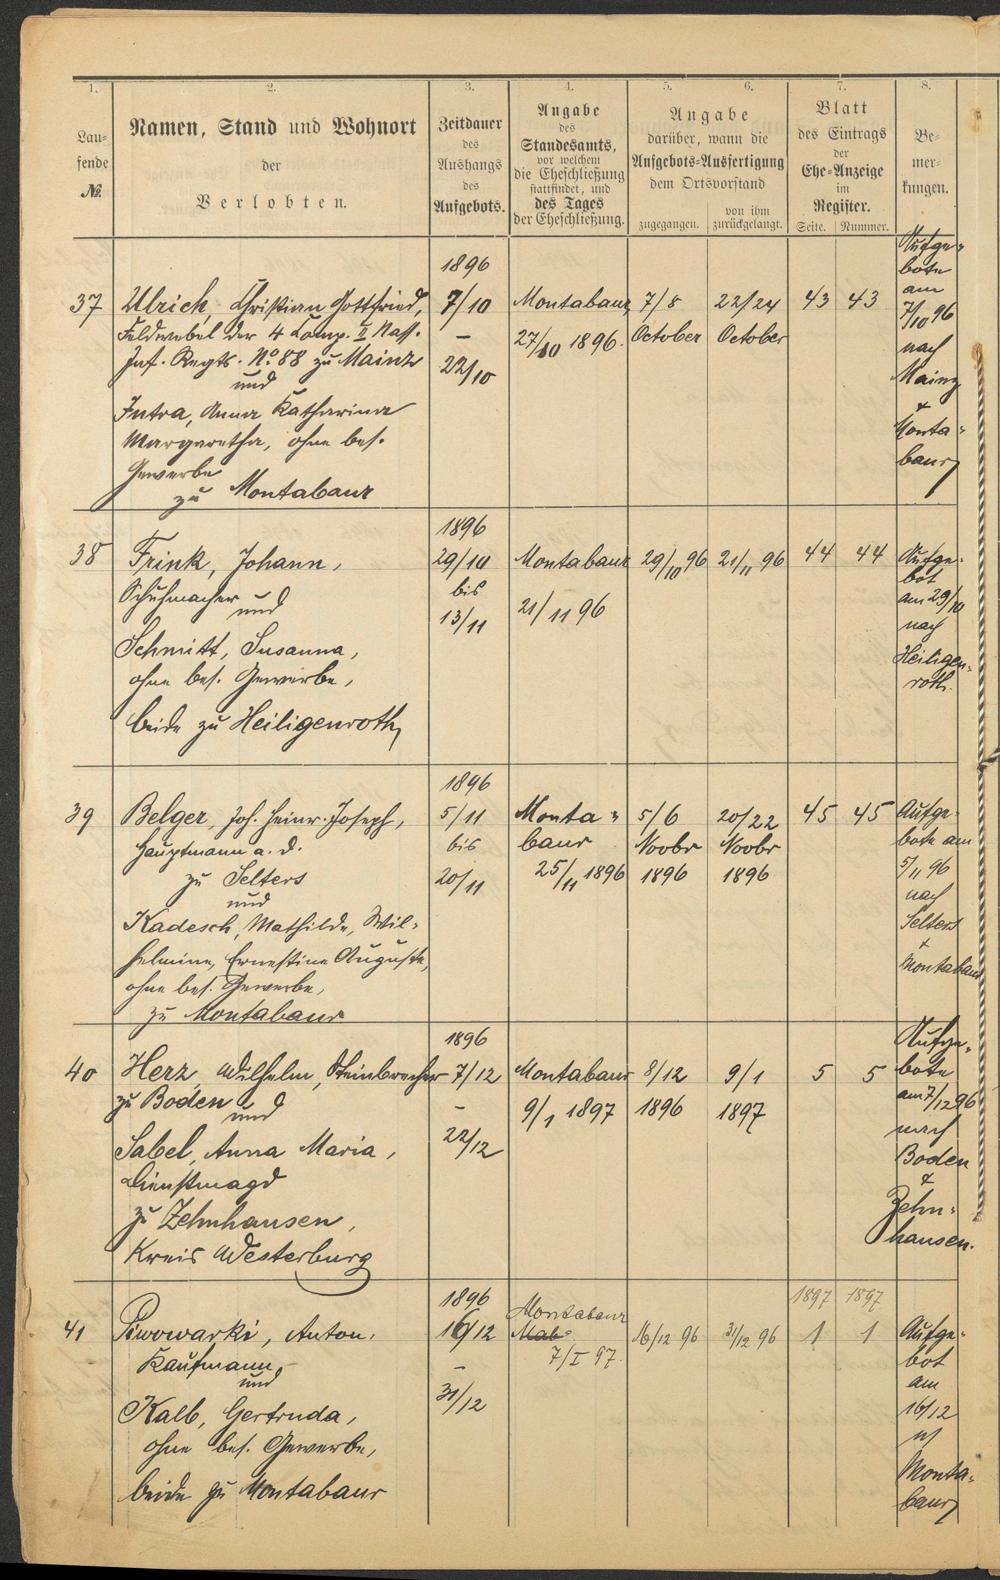 1.
Lau-
fende
№.
2.
Namen, Stand und Wohnort
der
Verlobten.
3.
Zeitdauer
des
Aushangs
des
Aufgebots.
4.
Angabe
des
Standesamts,
vor welchem
die Eheschließung
stattfindet, und
des Tages
der Eheschließung.
5. 6.
Angabe
darüber, wann die
Aufgebots-Ausfertigung
dem Ortsvorstand
zugegangen.
von ihm
zurückgelangt.
7.
Blatt
des Eintrags
der
Ehe-Anzeige
im
Register.
Seite. Nummer.
8.
Be-
mer-
kungen.
37
Ulrich, Christian Gottfried,
Feldwebel der 4 Comp. II Nass.
Inf. Regts. No 88 zu Mainz
und
Intra, Anna Katharina
Margaretha, ohne bes.
Gewerbe
zu Montabaur
1896
7/10
–
22/10
Montabaur
27/10 1896.
7/8
October
22/24
October
43 43
Aufge-
bote
am
7/10 96
nach
Mainz
&
Monta-
baur
38
Frink, Johann,
Schuhmacher
und
Schmitt, Susanna,
ohne bes. Gewerbe,
beide zu Heiligenroth
1896
29/10
bis
13/11
Montabaur
21/11 96
29/10 96
21/11 96
44 44
Aufge-
bot
am 29/10
nach
Heiligen-
roth.
39
Belger, Joh. Heinr. Joseph,
Hauptmann a. D.
zu Selters
und
Kadesch, Mathilde, Wil-
helmine, Ernestine Auguste,
ohne bes. Gewerbe,
zu Montabaur
1896
5/11
bis
20/11
Monta-
baur
25/11 1896
5/6
Novbr
1896
20/22
Novbr
1896
45 45
Aufge-
bote am
5/11 96
nach
Selters
&
Montabaur
40
Herz, Wilhelm, Steinbrecher
zu Boden
und
Sabel, Anna Maria,
Dienstmagd
zu Zehnhausen,
Kreis Westerburg
1896
7/12
–
22/12
Montabaur
9/1 1897
8/12
1896
9/1
1897
5 5
Aufge-
bote
am 7/12 96
nach
Boden
&
Zehn-
hausen.
41
Piwowarki, Anton,
Kaufmann,
und
Kalb, Gertruda,
ohne bes. Gewerbe,
beide zu Montabaur
1896
16/12
–
31/12
Montabaur
7/I 97.
16/12 96
31/12 96
1897 1897
1 1
Aufge-
bot
am
16/12
n/
Monta-
baur